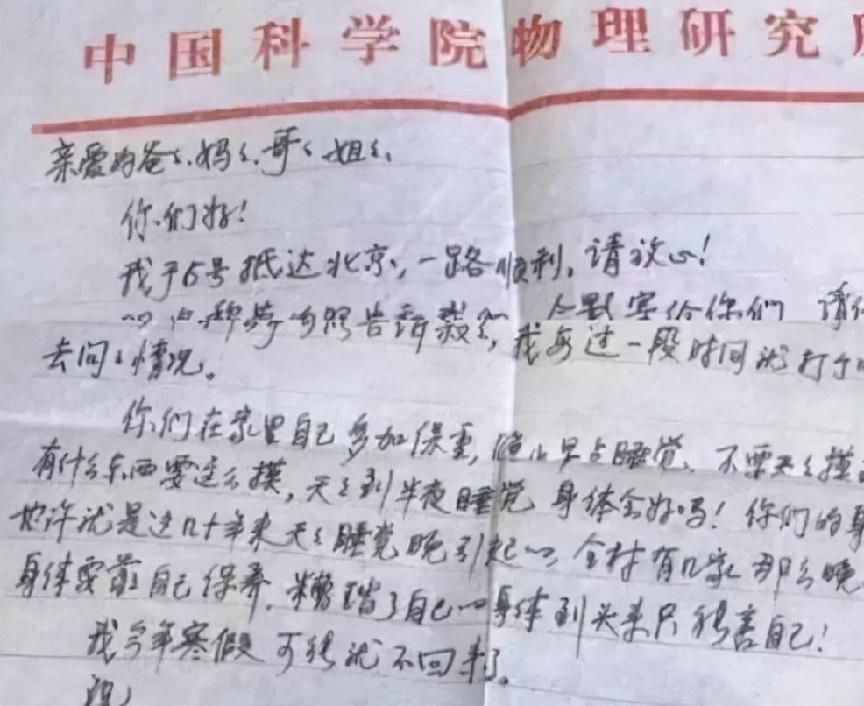 中国科学院物理研究
亲爱的爸々、妈々、哥々、姐々、
你们好!
我于5号抵达北京,一路顺利,请放心!
告诉叔々, 写给你们 请
去问々情况。我每过一段时间就打个
你们在家里自己多加保重,晚上早点睡觉、不要天々摸
有什么东西要这么摸,天々到半夜睡觉 身体会好吗!你们的身
也许就是这几十年来天々睡觉晚引起 全村有几家那么晚
身体要靠自己保养,糟蹋了自己的身体到头来只能害自己!
我今年寒假可能就不回来了。
祝